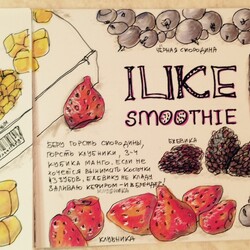 ЧЁРНАЯ СМОРОДИНА
I LIKE
SMOOTHIE
ЕЖЕВИКА
БЕРУ ГОРСТЬ СМОРОДИНЫ,
ГОРСТЬ КЛУБНИКИ, 3-4
КУБИКА МАНГО. ЕСЛИ НЕ
ХОЧЕТСЯ ВЫНИМАТЬ КОСТОЧКИ
ИЗ ЗУБОВ, ЕЖЕВИКУ НЕ КЛАДУ.
ЗАЛИВАЮ КЕФИРОМ - И В БЛЕНДЕР!
КЛУБНИКА
КЛУБНИКА